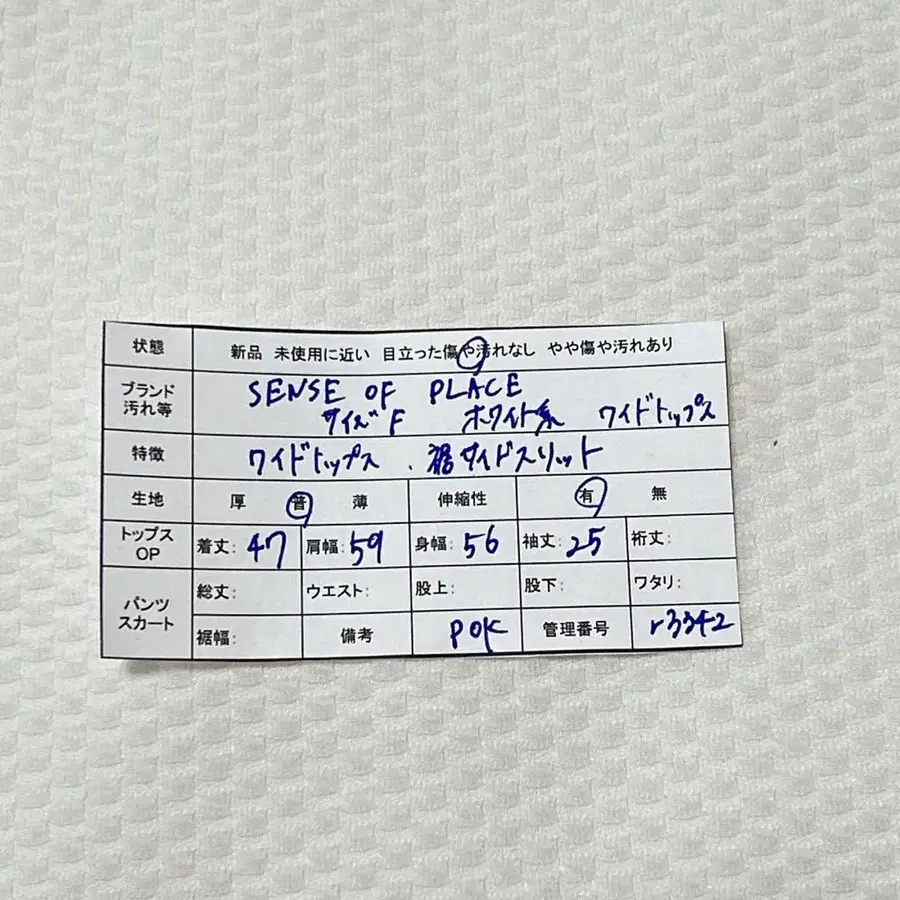 状態 新品 未使用に近い 目立った傷や汚れなし やや傷や汚れあり
ブランド 汚れ等 SENSE OF PLACE
サイズF ホワイト系 ワイドトップス
特徴 ワイドトップス、裾サイドスリット
生地 厚 普 薄 伸縮性 有 無
トップス OP 着丈: 47 肩幅: 59 身幅: 56 袖丈: 25 裄丈:
パンツ スカート 総丈: ウエスト: 股上: 股下: ワタリ:
裾幅: 備考 POK 管理番号 r3342